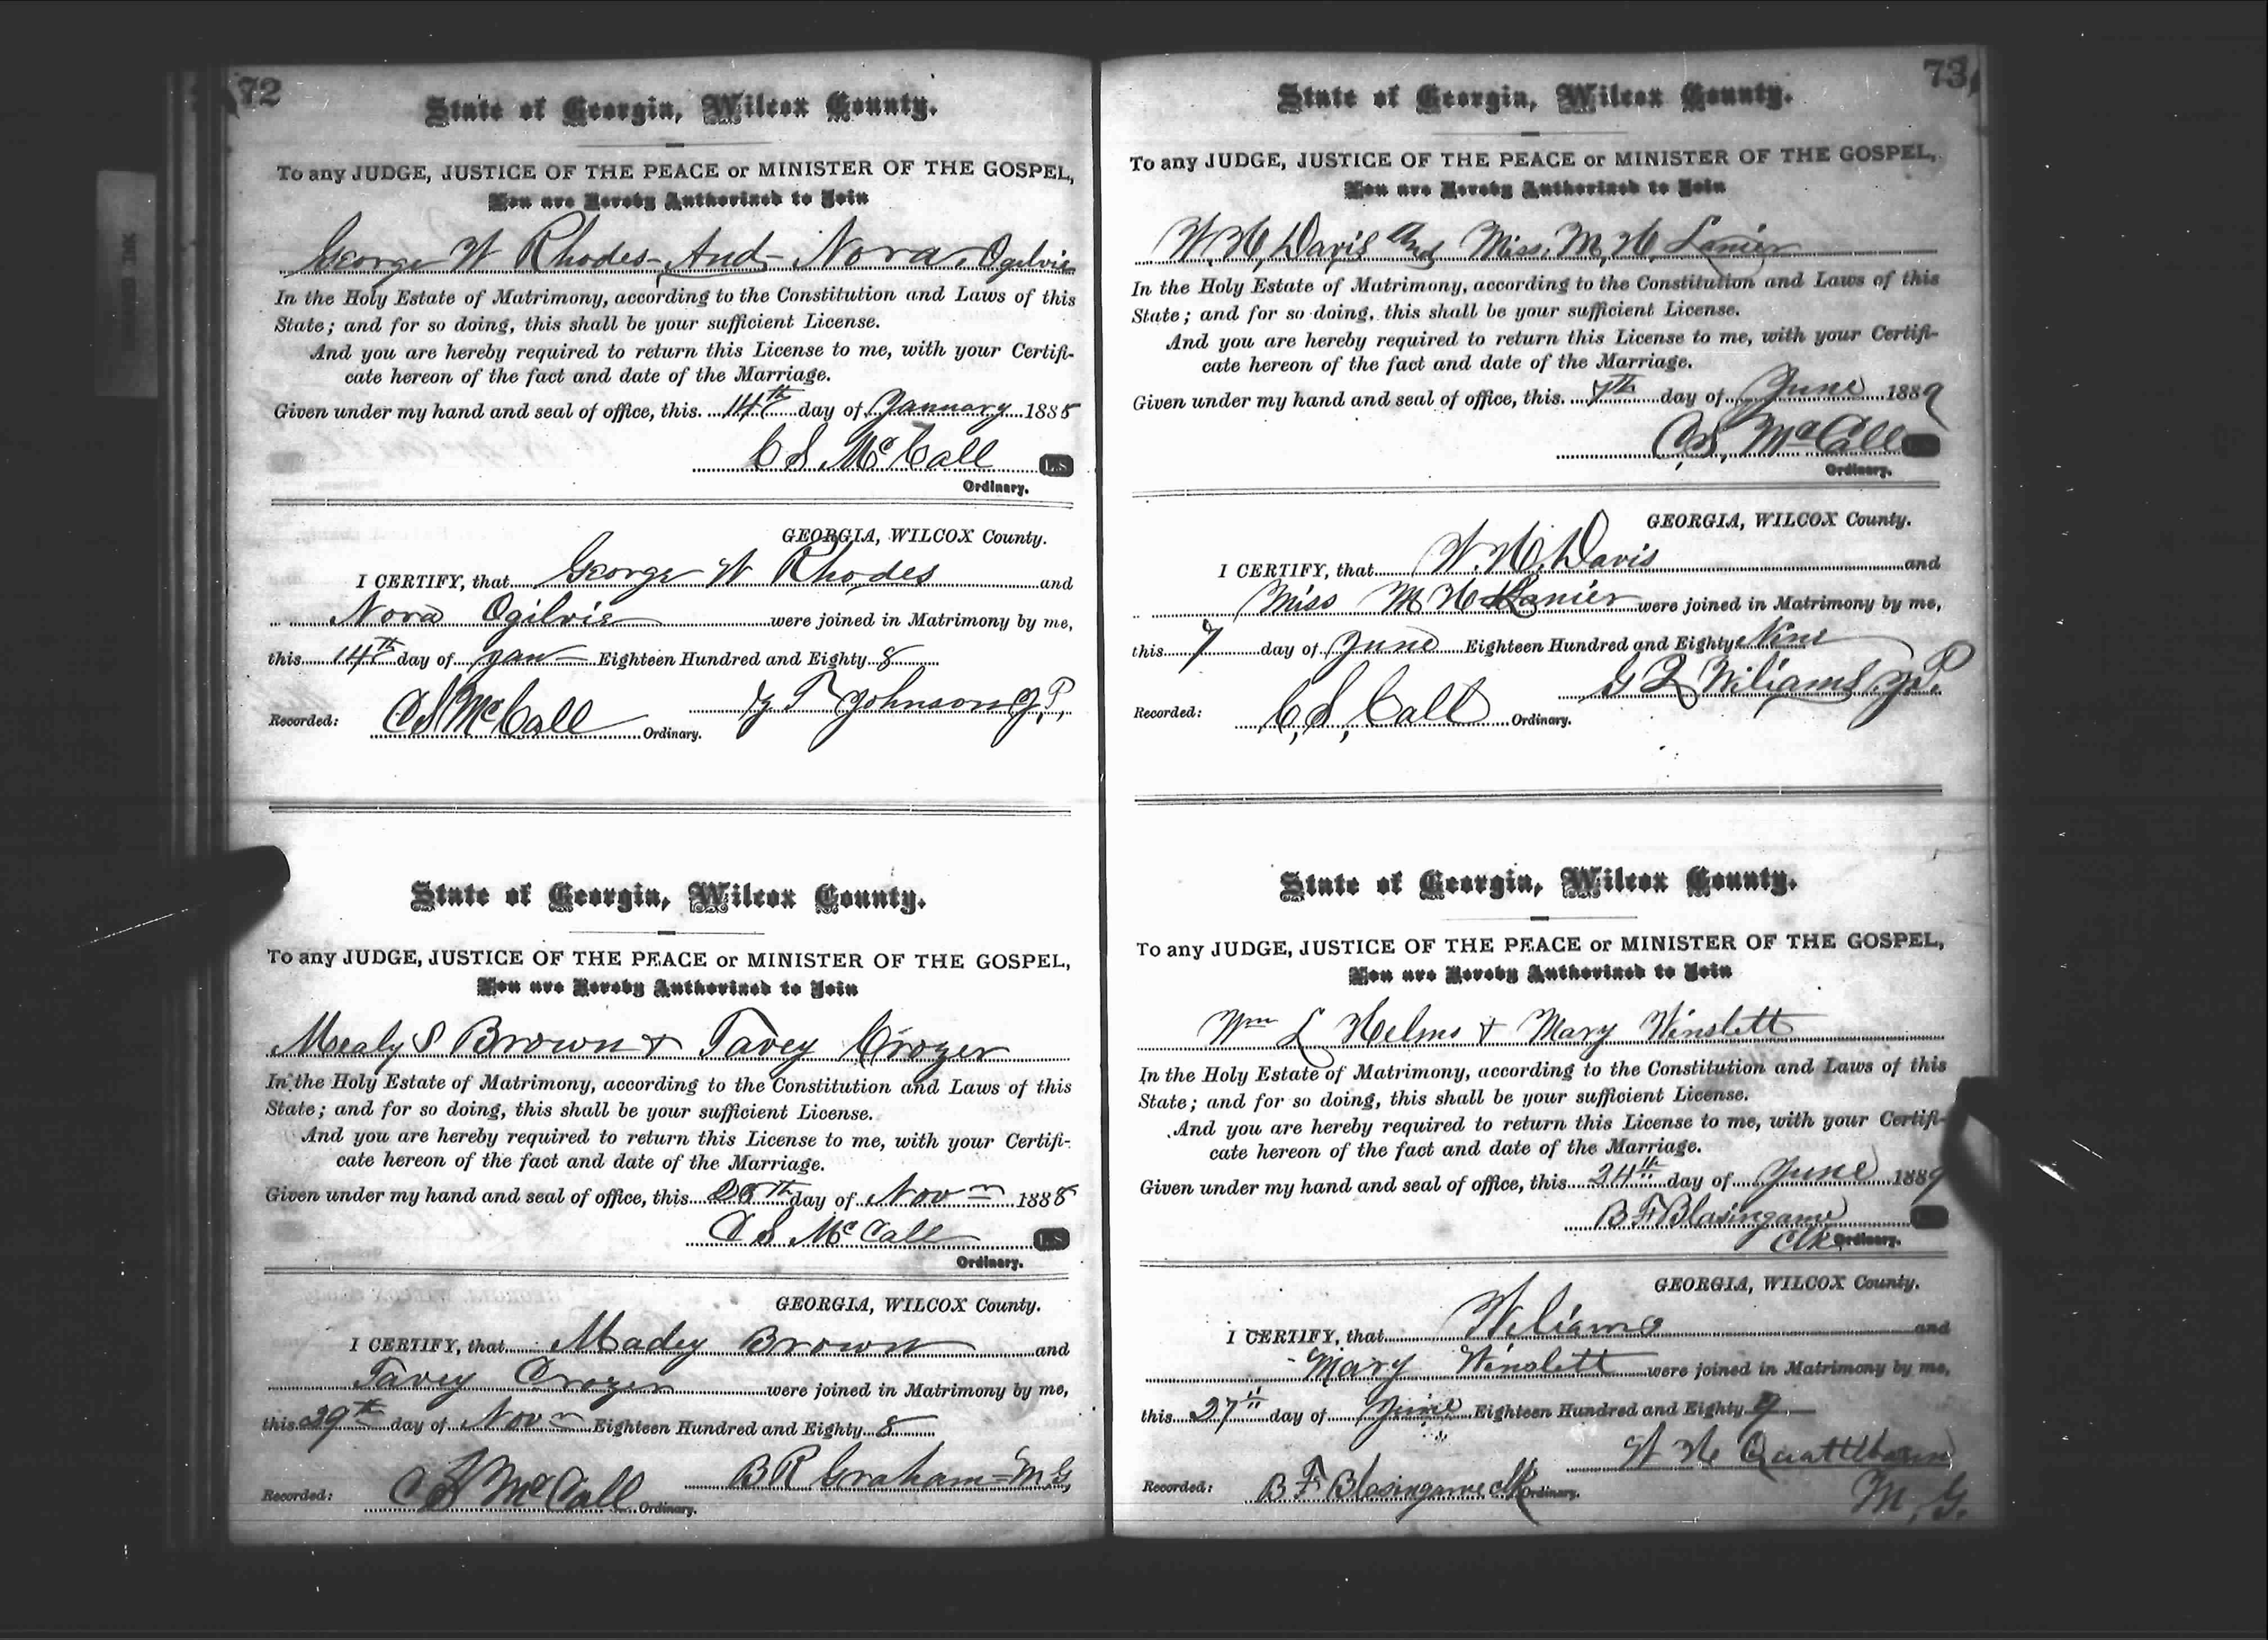 72
State of Georgia, Wilcox County.
To any JUDGE, JUSTICE OF THE PEACE or MINISTER OF THE GOSPEL,
You are Hereby Authorized to Join
George W Rhodes And Nora Ogilvie
In the Holy Estate of Matrimony, according to the Constitution and Laws of this
State; and for so doing, this shall be your sufficient License.
And you are hereby required to return this License to me, with your Certifi-
cate hereon of the fact and date of the Marriage.
Given under my hand and seal of office, this 14th day of January 1888
C S McCall L.S
Ordinary.
GEORGIA, WILCOX County.
I CERTIFY, that George W Rhodes and
Nora Ogilvie were joined in Matrimony by me,
this 14th day of Jan Eighteen Hundred and Eighty 8
T Johnson J.P,
Recorded: C S McCall Ordinary.
State of Georgia, Wilcox County.
To any JUDGE, JUSTICE OF THE PEACE or MINISTER OF THE GOSPEL,
You are Hereby Authorized to Join
Mealy S Brown & Tavey Crozer
In the Holy Estate of Matrimony, according to the Constitution and Laws of this
State; and for so doing, this shall be your sufficient License.
And you are hereby required to return this License to me, with your Certifi-
cate hereon of the fact and date of the Marriage.
Given under my hand and seal of office, this day of Nov 1888
C S McCall L.S
Ordinary.
GEORGIA, WILCOX County.
I CERTIFY, that Madey Brown and
Tavey Crozer were joined in Matrimony by me,
this 29th day of Nov Eighteen Hundred and Eighty 8
B R Graham = M.G,
Recorded: C S McCall Ordinary.
73
State of Georgia, Wilcox County.
To any JUDGE, JUSTICE OF THE PEACE or MINISTER OF THE GOSPEL,
You are Hereby Authorized to Join
W. H, Davis And Miss. M, H, Lanier
In the Holy Estate of Matrimony, according to the Constitution and Laws of this
State; and for so doing, this shall be your sufficient License.
And you are hereby required to return this License to me, with your Certifi-
cate hereon of the fact and date of the Marriage.
Given under my hand and seal of office, this 7th day of June 1889
C, S, McCall
Ordinary.
GEORGIA, WILCOX County.
I CERTIFY, that W. H. Davis and
Miss M H Lanier were joined in Matrimony by me,
this 7 day of June Eighteen Hundred and Eighty Nine
Wiliams J.P.
Recorded: C, S, Call Ordinary.
State of Georgia, Wilcox County.
To any JUDGE, JUSTICE OF THE PEACE or MINISTER OF THE GOSPEL,
You are Hereby Authorized to Join
Wm L Helms & Mary Winslett
In the Holy Estate of Matrimony, according to the Constitution and Laws of this
State; and for so doing, this shall be your sufficient License.
And you are hereby required to return this License to me, with your Certifi-
cate hereon of the fact and date of the Marriage.
Given under my hand and seal of office, this 24th day of June 1889
B F Blasingame
Clk Ordinary.
GEORGIA, WILCOX County.
I CERTIFY, that Weliams and
Mary Winslett were joined in Matrimony by me,
this 27" day of June Eighteen Hundred and Eighty 9
W H Quattlebaum
M, G.
Recorded: B F Blasingame Clk Ordinary.